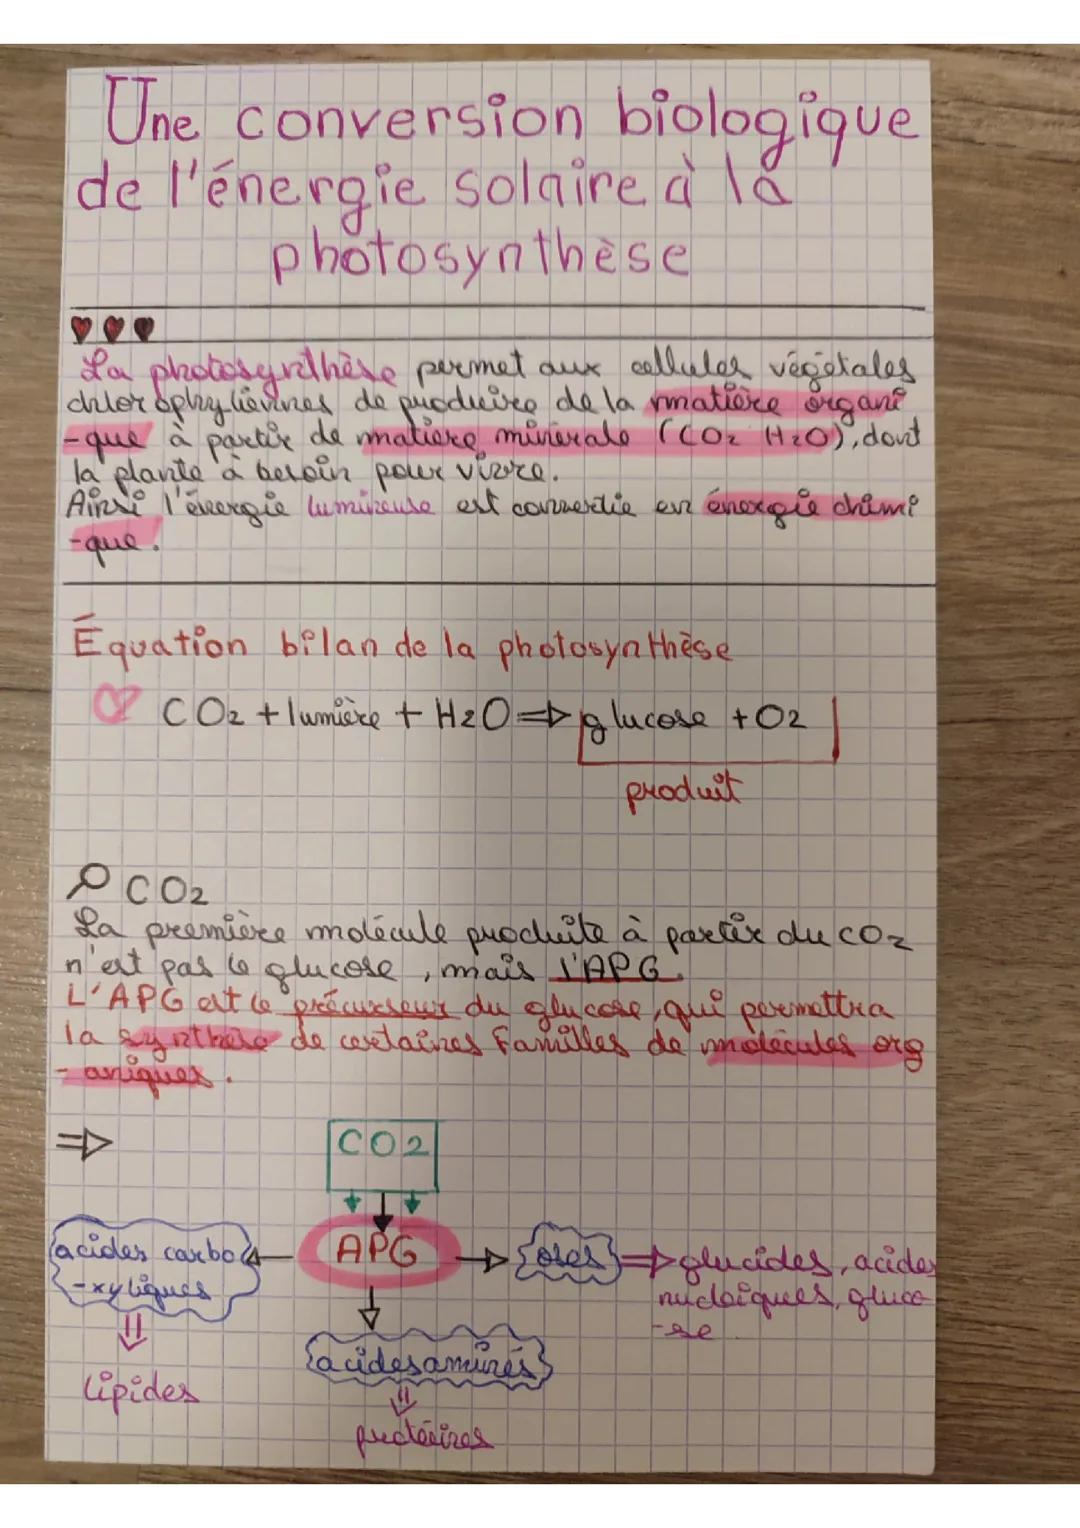 Une conversion biologique
de l'énergie solaire à la
photosynthèse
La photosynthèse permet aux cellules végétales
chlorophylliennes de produire de la matière organi
-que à partir de matière minérale (CO2 H2O), dont
la plante à besoin pour vivre.
Ainsi l'énergie lumineuse est convertie en énergie chimi
-que.
Équation bilan de la photosynthèse
CO2 + lumière + H2O ⇒ glucose + O2
produit
CO2
La première molécule produite à partir du CO2
n'est pas le glucose, mais l'APG.
L'APG est le précurseur du glucose, qui permettra
la synthèse de certaines familles de molécules org
-aniques.
⇒
CO2
acides carbo
-xyliques
APG
oses ⇒ glucides, acides
nucléiques, gluco
-se
acides aminés
lipides
protéines